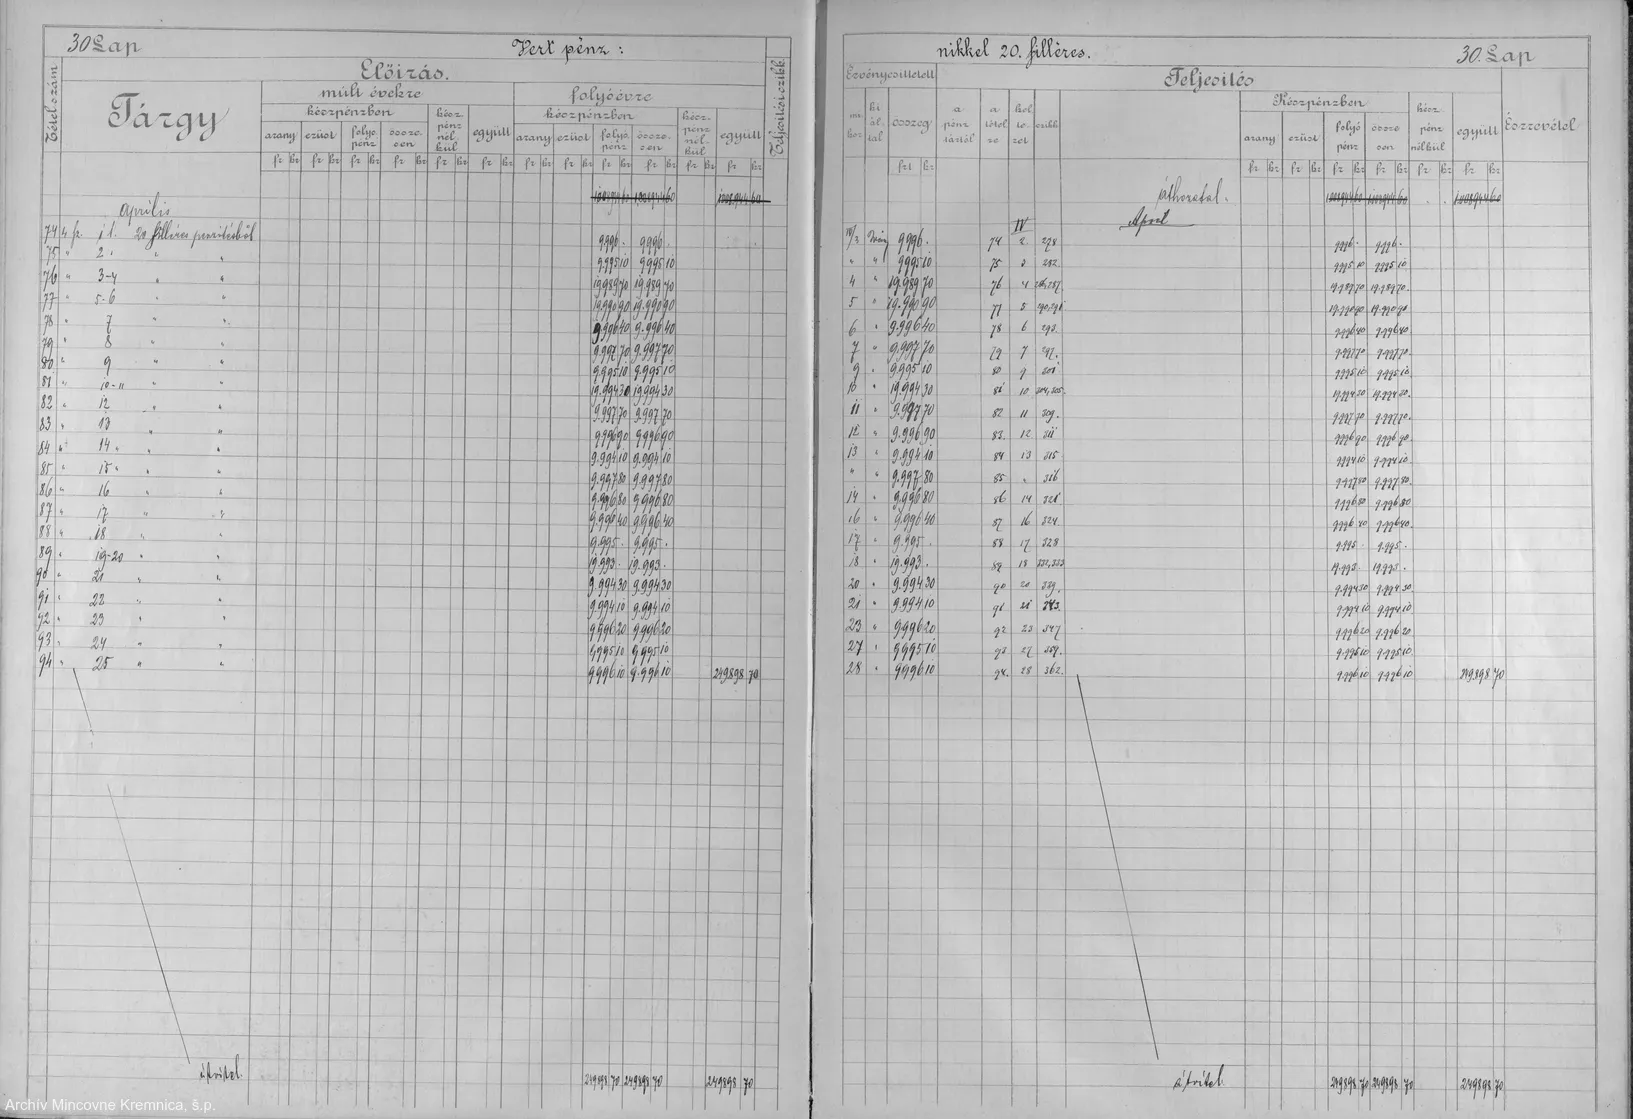 30 Lap
Vert pénz :
Tételszám
Előírás.
Tárgy
múlt évekre
folyóévre
készpénzben
kész pénz nél kül
együtt
készpénzben
kész- pénz nél- kül
együtt
arany ezüst folyó pénz össze sen
arany ezüst folyó pénz össze- sen
fr kr fr kr fr kr fr kr fr kr fr kr fr kr fr kr fr kr fr kr fr kr fr kr
április
74 1. 20 filléres 9996 . 9996 .
75 " 2 " " 9995 10 9995 10
76 " 3-4 " " 19.989 70 19.989 70
77 " 5-6 " " 19.990 90 19.990 90
78 " 7 " " 9.996 40 9.996 40
79 " 8 " " 9.997 70 9.997 70
80 " 9 " " 9.995 10 9.995 10
81 " 10-11 " " 19.994 30 19.994 30
82 " 12 " " 9.997 70 9.997 70
83 " 13 " " 9996 90 9996 90
84 " 14 " " 9.994 10 9.994 10
85 " 15 " " 9.997 80 9.997 80
86 " 16 " " 9.996 80 9.996 80
87 " 17 " " 9.996 40 9.996 40
88 " 18 " " 9.995 . 9.995 .
89 " 19-20 " " 19.993 . 19.993 .
90 " 21 " " 9.994 30 9.994 30
91 " 22 " " 9.994 10 9.994 10
92 " 23 " " 9996 20 9996 20
93 " 24 " " 9995 10 9995 10
94 " 25 " " 9996 10 9.996 10 249898 70
átvitel.
249898 70 249898 70 249898 70
nikkel 20. filléres.
30. Lap
Érvényesittetett
Teljesítés
összeg
a pénz tártól
a tétel re
kel te- zet
Készpénzben
kész pénz nélkül
együtt
Észrevétel
arany ezüst folyó pénz össze sen
frt kr fr kr fr kr fr kr fr kr fr kr fr kr
áthozatal.
IV
April
9996 . 74 2 278 9996 . 9996 .
" " 9995 10 75 3 282 9995 10 9995 10
4 " 19.989 70 76 4 19.989 70 19.989 70
5 " 19.990 90 77 5 19.990 90 19.990 90
6 " 9.996 40 78 6 293. 9996 40 9996 40
7 " 9.997 70 79 7 297. 9.997 70 9.997 70
9 " 9.995 10 80 9 301 9.995 10 9.995 10
10 " 19.994 30 81 10 304,305. 19.994 30 19.994 30
11 " 9.997 70 82 11 309. 9.997 70 9.997 70
12 " 9.996 90 83. 12 311 9996 90 9996 90
13 " 9.994 10 84 13 315 9994 10 9.994 10
" " 9.997 80 85 " 316 9.997 80 9.997 80
14 " 9.996 80 86 14 321 9996 80 9996 80
16 " 9.996 40 87 16 324. 9996 40 9996 40
17 " 9.995 . 88 17 328 9.995 . 9.995 .
18 " 19.993 . 89 18 332,333 19.993 . 19.993 .
20 " 9.994 30 90 20 339. 9.994 30 9.994 30
21 " 9994 10 91 21 343. 9.994 10 9.994 10
23 " 9996 20 92 23 347 9.996 20 9.996 20
27 " 9995 10 93 27 359. 9.995 10 9.995 10
28 " 9996 10 94. 28 362. 9.996 10 9.996 10 249898 70
átvitel
249898 70 249898 70 249898 70
Archív Mincovne Kremnica, š.p.